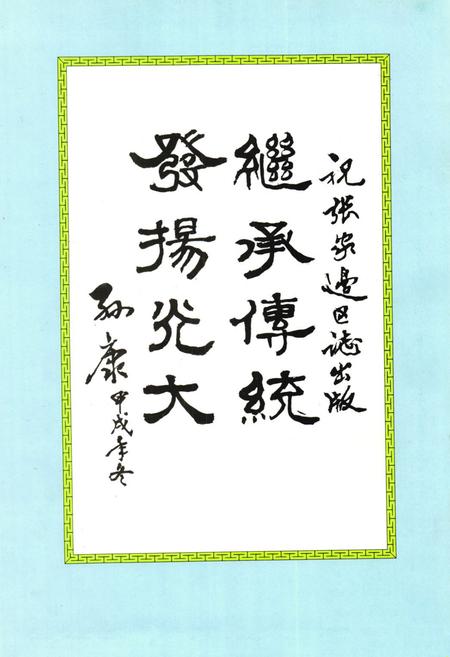 祝張家邊区誌出版
繼承傳統
發揚光大
孙康
甲戌年冬